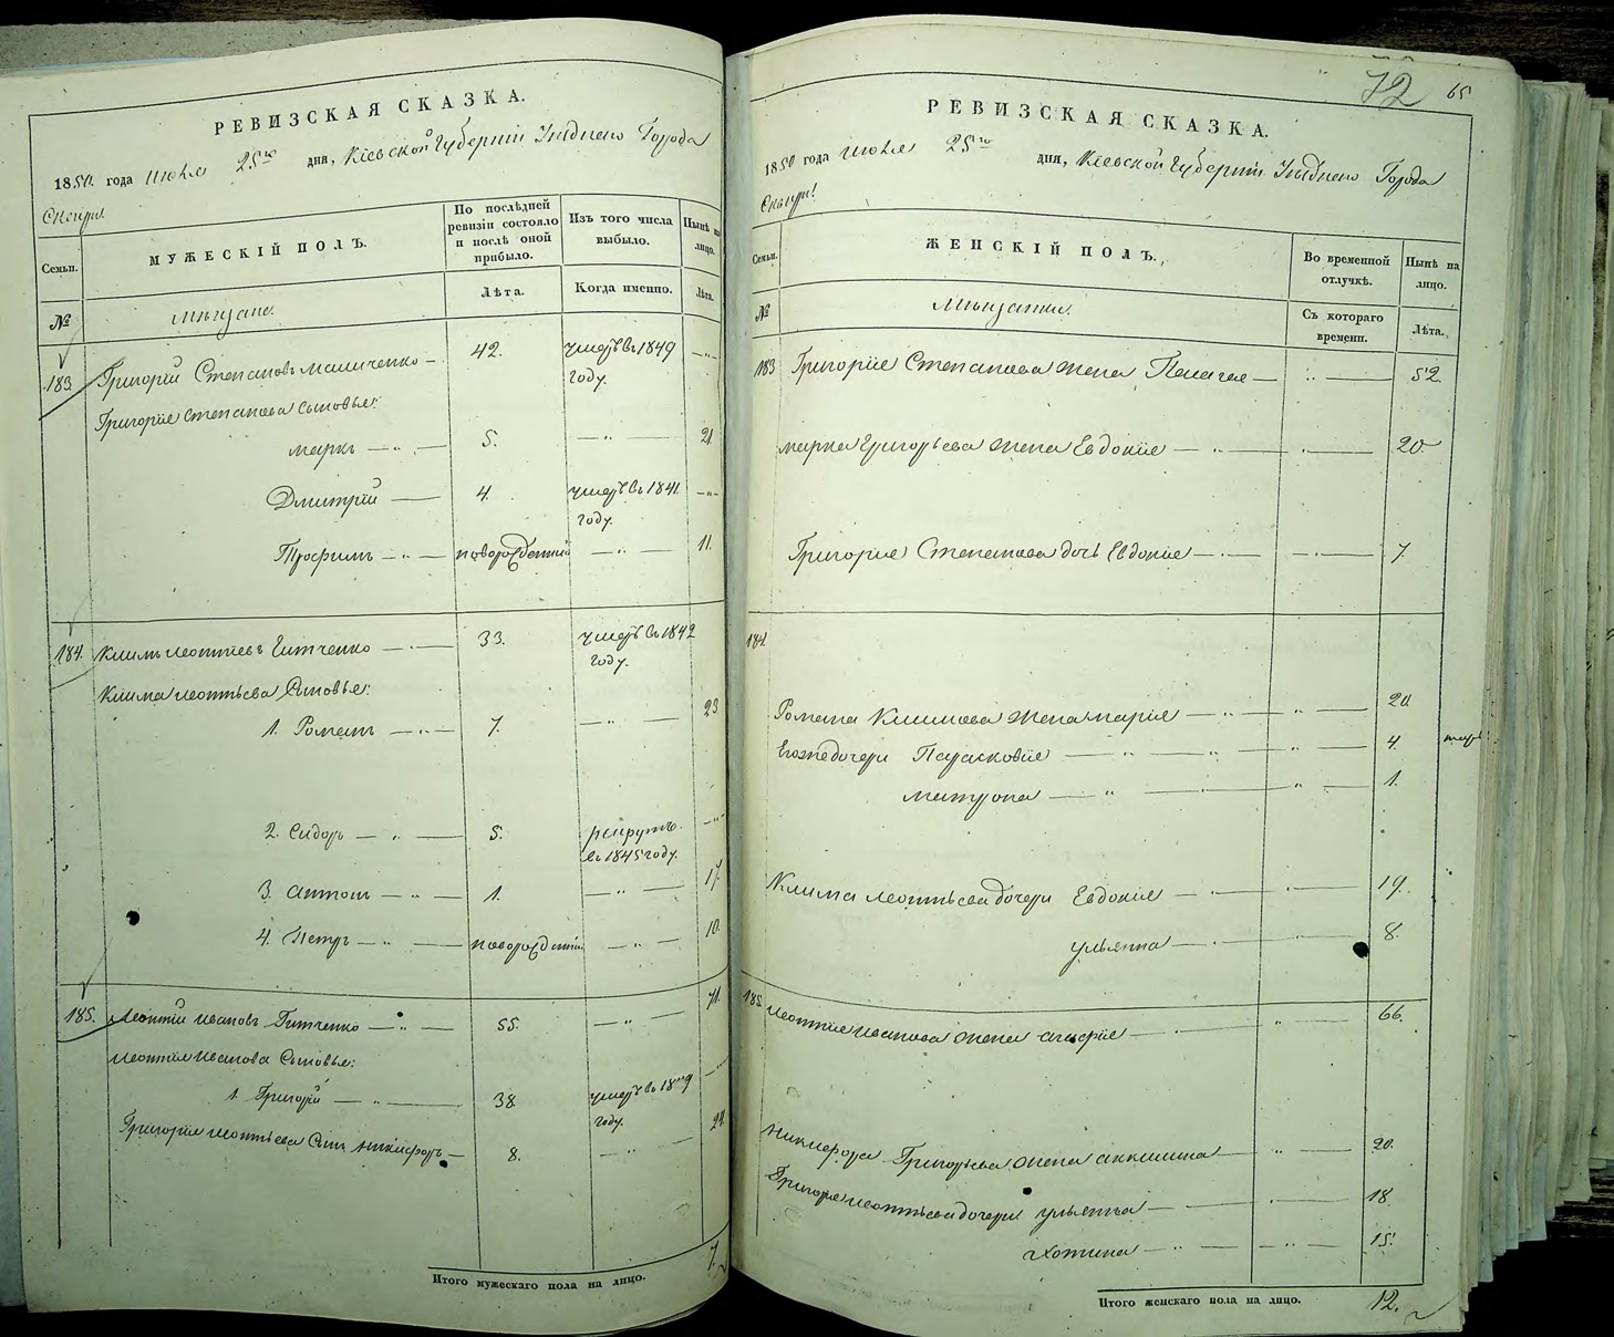 РЕВИЗСКАЯ СКАЗКА.
1850. года Июля 25го дня, Кіевской Губерніи Уѣднаго Города
Сквири.
Семьи.
МУЖЕСКІЙ ПОЛЪ.
По послѣдней ревизіи состояло и послѣ оной прибыло.
Изъ того числа выбыло.
Нынѣ на лицо.
№
Мѣщане.
Лѣта.
Когда именно.
Лѣта.
183. Григорій Степановъ 42. умеръ въ 1849 году. — " —
Григорія Степанова сыновья:
Маркъ — " — 5. — " — 21.
Дмитрій — 4. умеръ въ 1841 году. — " —
Трофимъ — " — новорожденный — " — 11.
184. Климъ Леонтіевъ Гитченко — 33. умеръ въ 1842 году.
Клима Леонтьева Сыновья:
1. Романъ — " — 7. — " — 23.
2. Сидоръ — " — 5. рекрутъ въ 1845 году. — " —
3. Антонъ — " — 1. — " — 17.
4. Петръ — " — новорожденный — " — 10.
185. Леонтій Ивановъ Гитченко — " — 55. — " — 71.
Леонтія Иванова Сыновья:
1. Григорій — " — 38. умеръ въ 1849 году. — " —
Григорія Леонтьева Сынъ Никифоръ — 8. — " — 24.
Итого мужескаго пола на лицо. 7.
72 65
РЕВИЗСКАЯ СКАЗКА.
1850 года Июля 25го дня, Кіевской Губерніи Уѣднаго Города
Сквири!
Семьи.
ЖЕНСКІЙ ПОЛЪ.
Во временной отлучкѣ.
Нынѣ на лицо.
№
Мѣщанки.
Съ котораго времени.
Лѣта.
183 Григорія Степанова жена Пелагея — " — 52.
Марка Григорьева жена Евдокія — " — 20.
Григорія Степанова дочь Евдокія — " — 7.
184.
Романа Климова жена Марія — " — 20.
Его же дочери Парасковія — " — 4.
Матрона — " — 1.
Клима Леонтьева дочери Евдокія — " — 19.
Ульянна — " — 8.
185. Леонтія Иванова жена — " — 66.
Никифора Григорьева жена Аккилина — " — 20.
Григорія Леонтьева дочери Ульянна — " — 18
Хотина — " — 15.
Итого женскаго пола на лицо. 12.